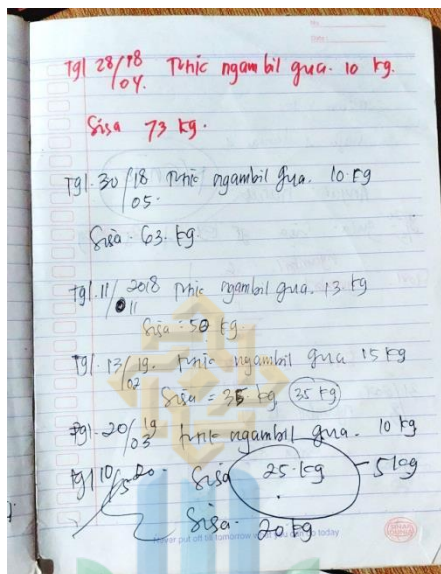 No.
Date:
Tgl 28/18/04. Tunic ngambil gua. 10 kg.
Sisa 73 kg.
Tgl. 30/18/05. Tunic ngambil gua. 10 kg
Sisa. 63. kg
Tgl. 11/2018/011 Tunic ngambil gua. 13 kg
Sisa = 50 kg.
Tgl. 13/19/02. Tunic ngambil gua 15 kg
Sisa = 35 kg, 35 kg
Tgl-20/19/03 Tunic ngambil gua. 10 kg
Tgl 10/5 20. Sisa 25.kg - 5 kg
Sisa. 20 kg
Never put off til tomorrow what you can do today